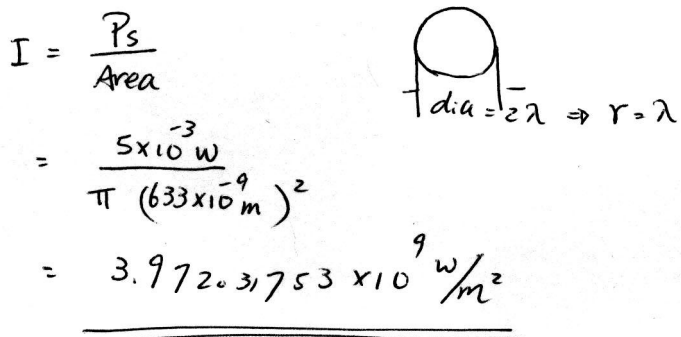 I = Ps / Area
dia = 2λ ⇒ r = λ
= 5×10⁻³ W / π (633×10⁻⁹ m)²
= 3.972.3,753 ×10⁹ W/m²